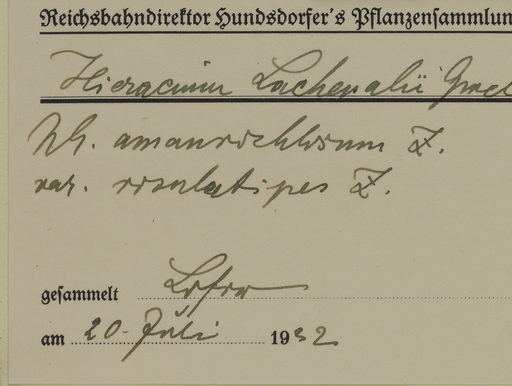 Reichsbahndirektor Hundsdorfer's Pflanzensammlun
Hieracium Lachenalii Gmel
amaurochlorum Z.
var. rosulatipes Z.
gesammelt Lofer
am 20. Juli 1932